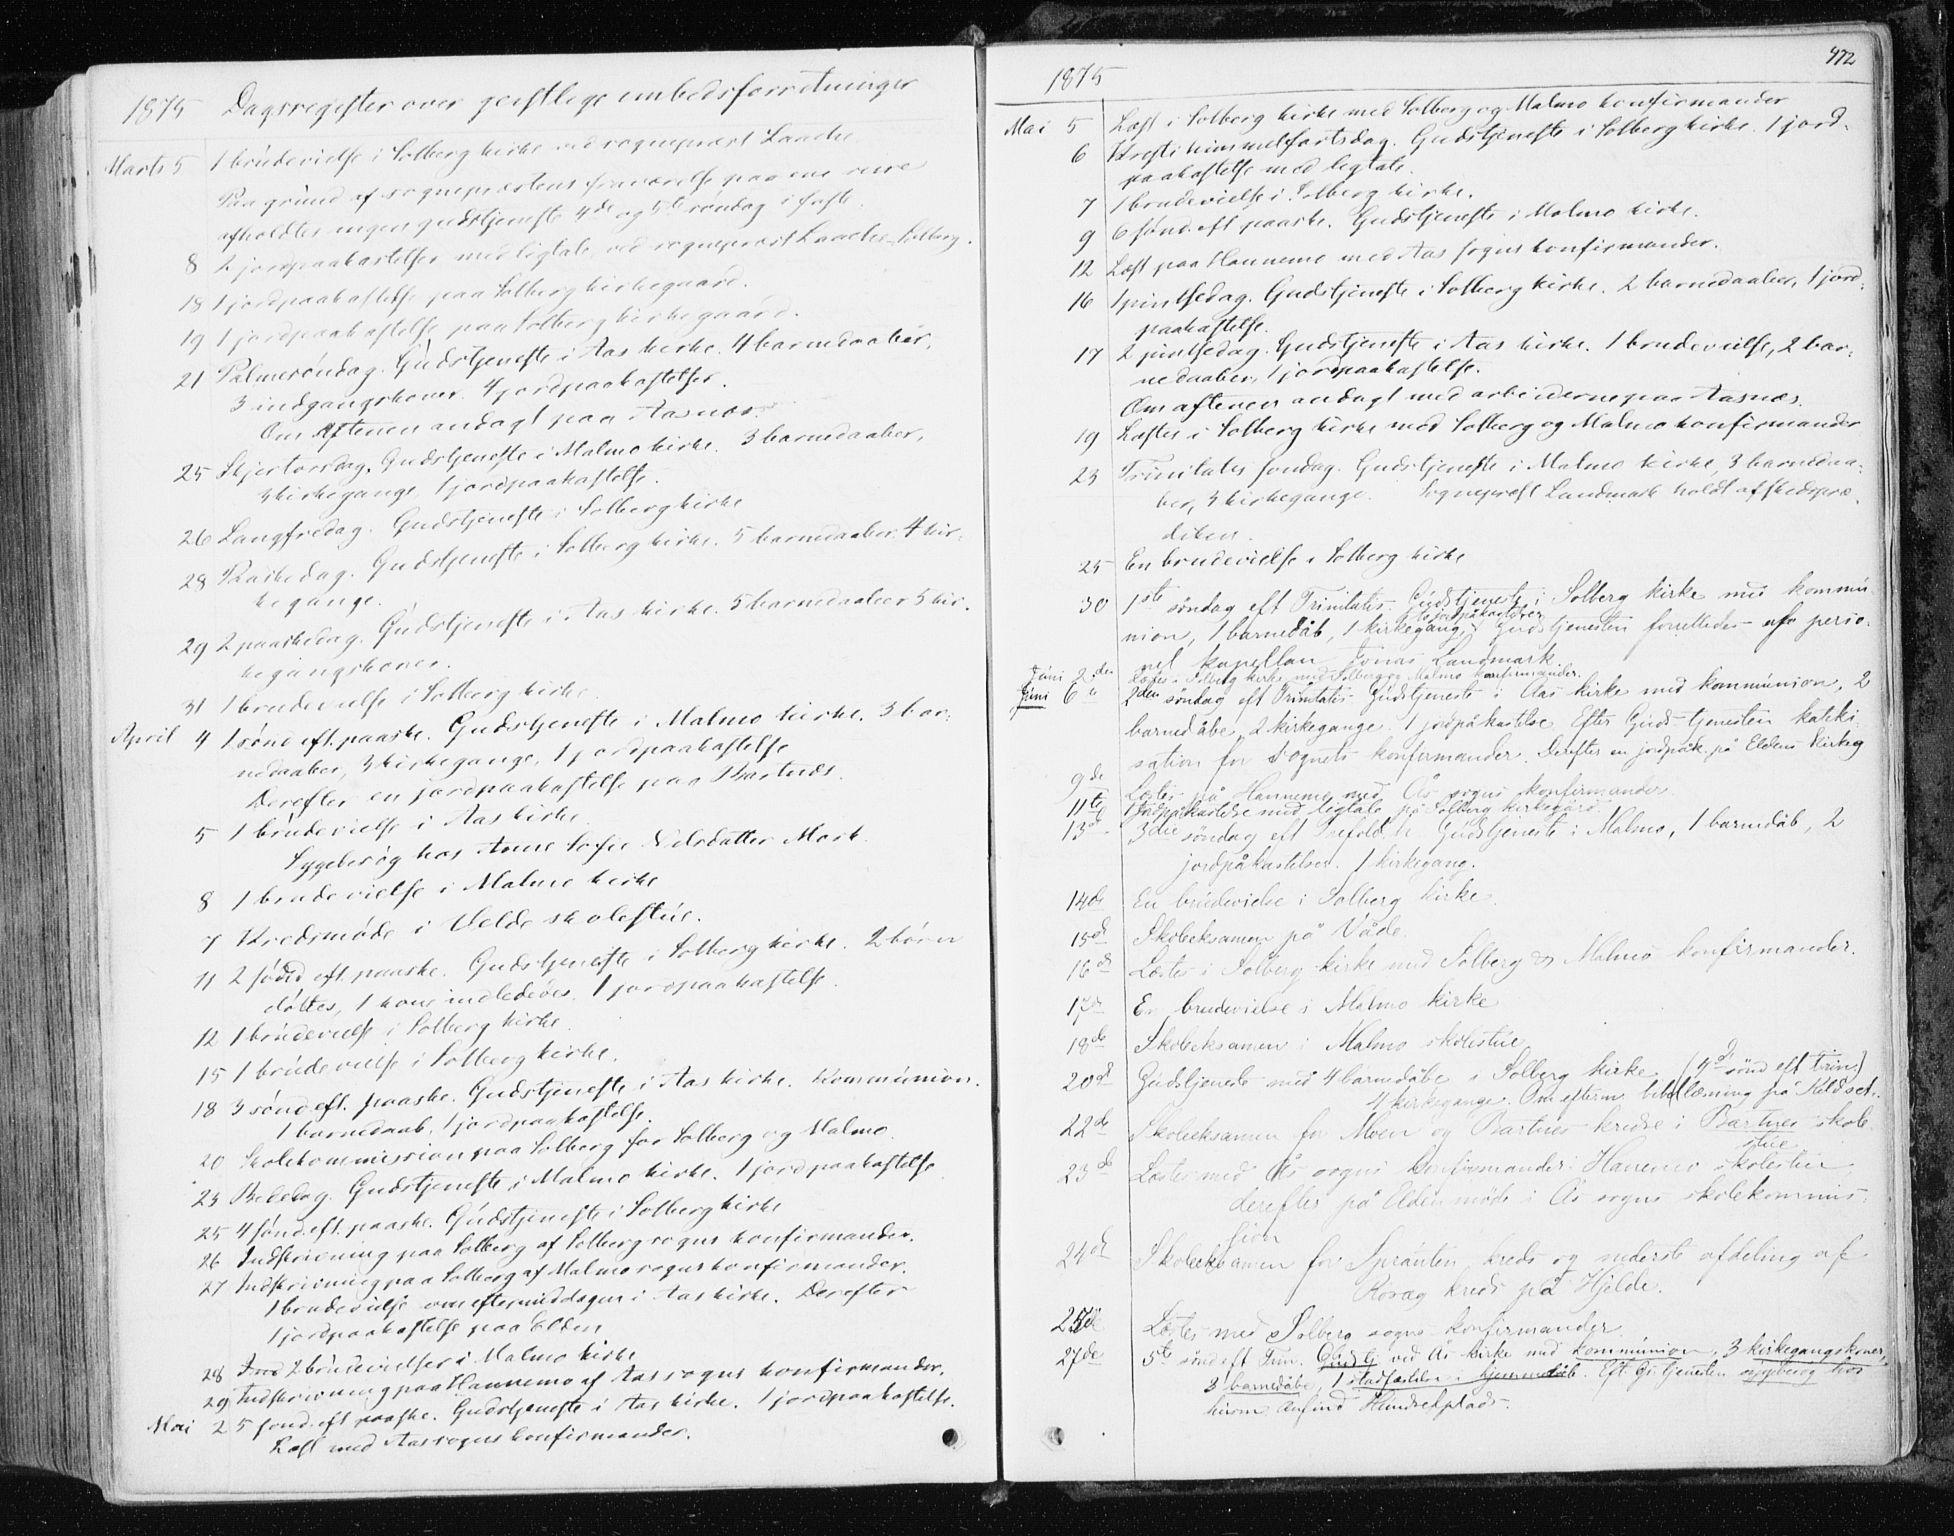 1875 Dagsregister over geistlige embedsforretninger
Marts 5 1 brudevielse i Solberg kirke ved sogneprest Laache
Paa grund af sogneprestens fraværelse paa en reise
afholdtes ingen gudstjeneste 4de og 5te søndag i faste.
8 2 jordpaakastelser med ligtale, ved sogneprest Laache, Solberg.
18 1 jordpaakastelse paa Solberg kirkegaard.
19 1 jordpaakastelse paa Solberg kirkegaard.
21 Palmesøndag. Gudstjeneste i Aas kirke. 4 barnedaaber,
3 indgangskoner. 4 jordpaakastelser.
Om Aftenen andagt paa Aasnæs.
25 Skjertorsdag. Gudstjeneste i Malmo kirke. 3 barnedaaber,
3 kirkegange, 1 jordpaakastelse.
26 Langfredag. Gudstjeneste i Solberg kirke
28 Paaskedag. Gudstjeneste i Solberg kirke. 5 barnedaaber. 4 kir-
kegange.
29 2 paaskedag. Gudstjeneste i Aas kirke. 5 barnedaaber 5 kir-
kegangskoner.
31 1 brudevielse i Solberg kirke.
April 4 1 sønd. eft. paaske. Gudstjeneste i Malmo kirke. 3 bar-
nedaaber, 3 kirkegange, 1 jordpaakastelse
Derefter en jordpaakastelse paa Bartnæs.
5 1 brudevielse i Aas kirke
Sygebesøg hos Anne Sofie Nilsdatter Mork.
8 1 brudevielse i Malmo kirke
7 Kredsmøde i Velde skolestue.
11 2 sønd eft. paaske. Gudstjeneste i Solberg kirke. 2 børn
døbtes, 1 kone indlededes. 1 jordpaakastelse.
12 1 brudevielse i Solberg kirke.
15 1 brudevielse i Solberg kirke.
18 3 sønd. eft. paaske. Gudstjeneste i Aas kirke. Kommunion.
1 barnedaab, 1 jordpaakastelse.
20 Skolekommission paa Solberg for Solberg og Malmo.
23 Bededag. Gudstjeneste i Malmo kirke. 1 jordpaakastelse
25 4 sønd. eft. paaske. Gudstjeneste i Solberg kirke
26 Indskrivning paa Solberg af Solberg sogns konfirmander.
27 Indskrivning paa Solberg af Malmo sogns konfirmander.
1 brudevielse om eftermiddagen i Aas kirke. Derefter
1 jordpaakastelse paa Elden
28 2 brudevielser i Malmo kirke
29 Indskrivning paa Hannemo af Aas sogns konfirmander.
Mai 2 5 sønd. eft. paaske. Gudstjeneste i Aas kirke. 1 jordpaakastelse.
Læst med Aas sogns konfirmander.
472
1875
Mai 5 Læst i Solberg kirke med Solberg og Malmo konfirmander
6 Kristi himmelfartsdag. Gudstjeneste i Solberg kirke. 1 jord-
paakastelse med ligtale.
7 1 brudevielse i Solberg kirke.
9 6 sønd. eft paaske. Gudstjeneste i Malmo kirke.
12 Læst paa Hannemo med Aas sogns konfirmander.
16 1 pintsedag. Gudstjeneste i Solberg kirke. 2 barnedaaber, 1 jord-
paakastelse.
17 2 pintsedag. Gudstjeneste i Aas kirke. 1 brudevielse, 2 bar-
nedaaber, 1 jordpaakastelse.
Om aftenen andagt med arbeiderne paa Aasnæs.
19 Læstes i Solberg kirke med Solberg og Malmo konfirmander
23 Trinitatis søndag. Gudstjeneste i Malmo kirke, 3 barnedaa-
ber, 3 kirkegange. Sogneprest Landmark holdt afskedspræ-
diken.
25 En brudevielse i Solberg kirke
30 1ste søndag eft Trinitatis. Gudstjeneste i Solberg kirke med kommu
nion, 1 barnedåb, 1 kirkegang, jordpåkastelser Gudstjenesten forrettedes af perso-
nel kapellan Jonas Landmark.
Juni 2den Læstes i Solberg kirke med Solberg og Malmo konfirmander.
Juni 6te 2den søndag eft Trinitatis Gudstjeneste i Aas kirke med kommunion, 2
barnedåbe, 2 kirkegange. 1 jordpåkastelse. Efter Guds-tjenesten kateki-
sation for sognets konfirmander. Derefter en jordpåk. på Eldens kirkeg
9de Læstes på Hannemo med Ås sogns konfirmander.
11te 1 Jordpåkastelse med ligtale på Solberg kirkegård
13de 3die søndag eft Trefoldigh. Gudstjeneste i Malmo, 1 barnedåb, 2
jordpåkastelser. 1 kirkegang.
14de En brudevielse i Solberg kirke.
15de Skoleeksamen på Våde.
16de Læstes i Solberg kirke med Solberg & Malmo konfirmander.
17de En brudevielse i Malmo kirke
18de Skoleeksamen i Malmo skolestue
20de Gudstjeneste med 4 barnedåbe i Solberg kirke (4de sønd eft trin)
4 kirkegange. Om efterm. bibellæsning på Heldset.
22de Skoleeksamen for Moen og Bartnes kredse i Bartnes skole
stue
23de Læstes med Ås sogns konfirmander. Hannemo skolestue
derefter på Elden møde i Ås sogns skolekommis-
sion
24de Skoleeksamen for Sprauten kreds og nederste afdeling af
kreds på Hjelde.
25de Læstes med Solberg sogns konfirmander
27de 5te sønd eft Trin. Gudstj ved Ås kirke med kommunion, 3 kirkegangskoner,
3 barnedåbe, 1 stadfæstelse i hjemmedåb. Eft. Gs. tjenesten sygebesøg hos